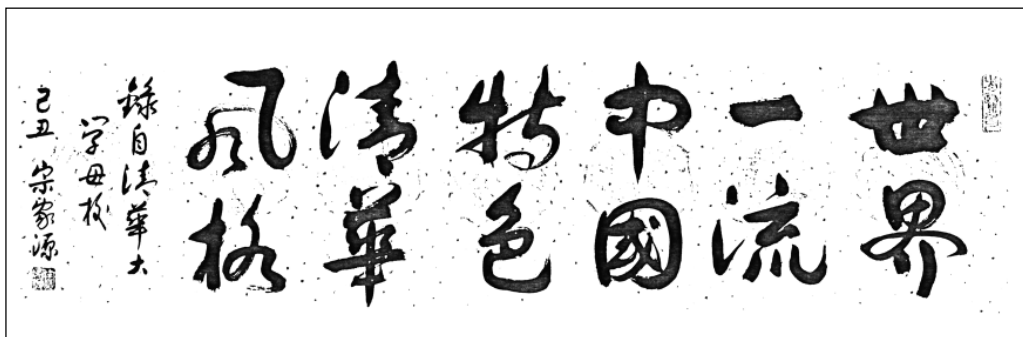 世界
一流
中國
特色
清華
風格
錄自清華大
学母校
己丑 宗家源